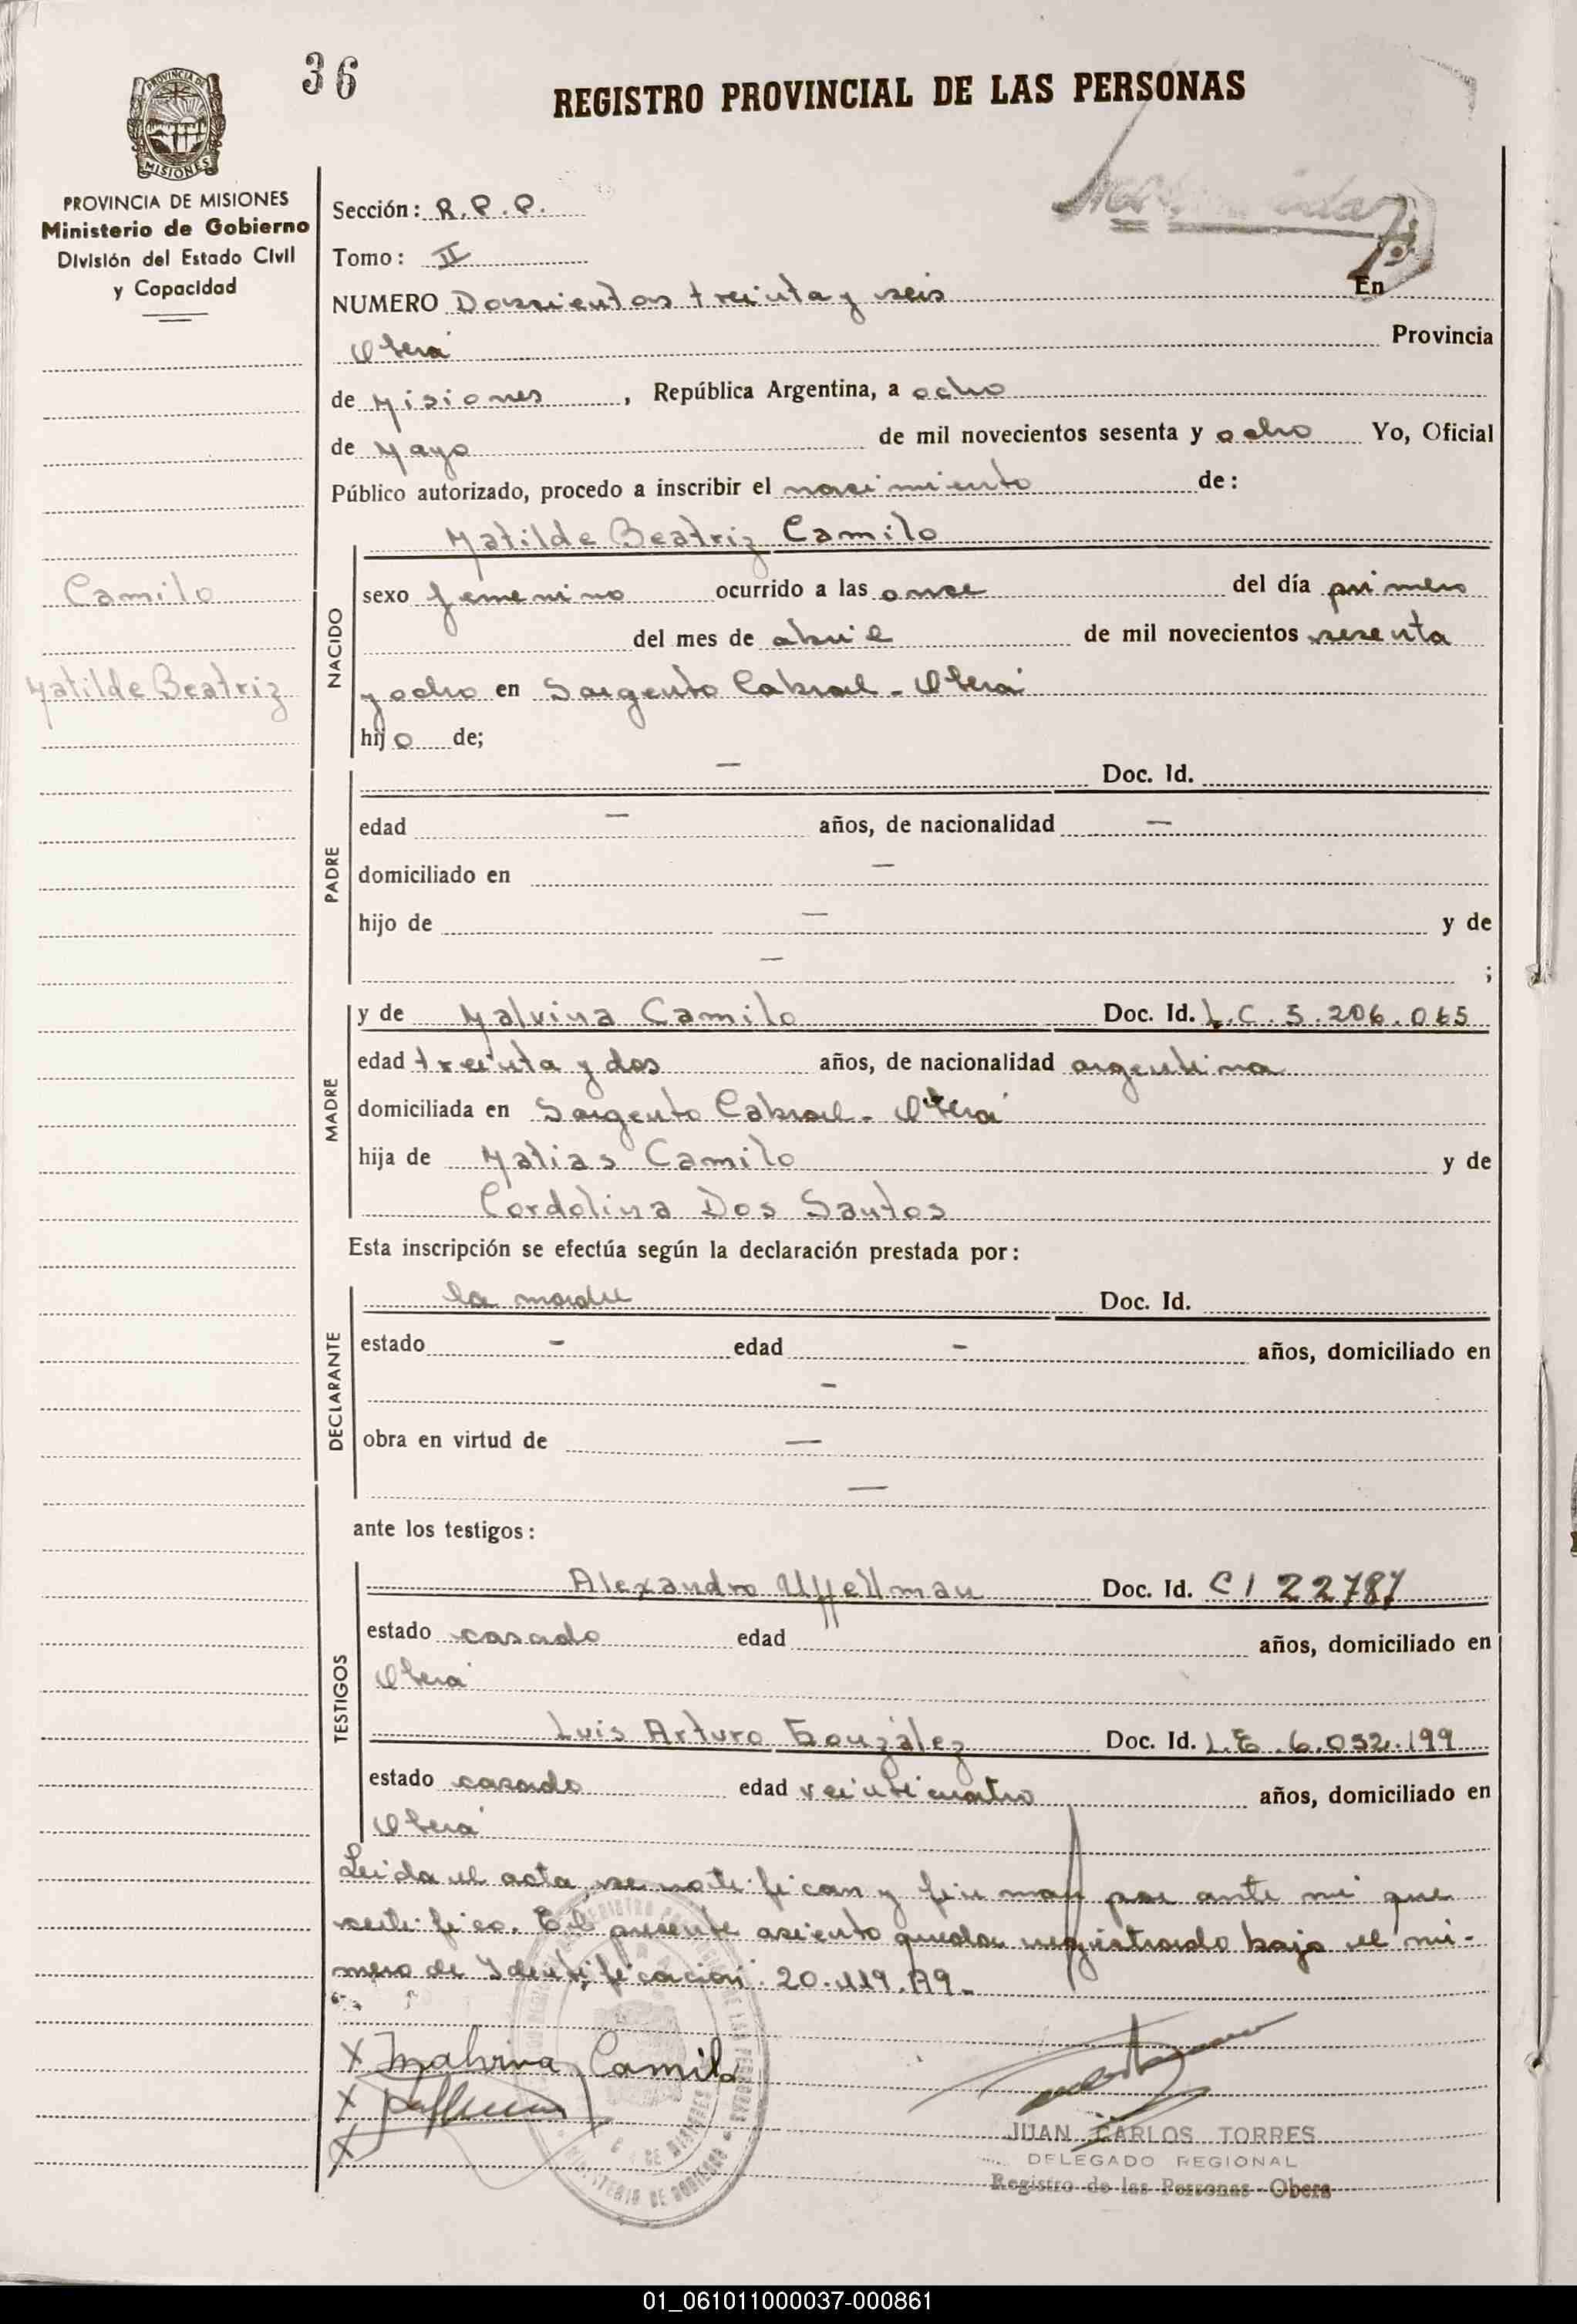 36
REGISTRO PROVINCIAL DE LAS PERSONAS
PROVINCIA DE MISIONES
MISIONES
PROVINCIA DE MISIONES
Ministerio de Gobierno
División del Estado Civil
y Capacidad
Sección: R.P.P.
Tomo: II
NUMERO Doscientos treinta y seis En
Oberá Provincia
de Misiones, República Argentina, a ocho
de Mayo de mil novecientos sesenta y ocho Yo, Oficial
Público autorizado, procedo a inscribir el nacimiento de:
Matilde Beatriz Camilo
Camilo
Matilde Beatriz
NACIDO
sexo femenino ocurrido a las once del día primero
del mes de abril de mil novecientos sesenta
y ocho en Sargento Cabral - Oberá
hijo de;
PADRE
— Doc. Id.
edad — años, de nacionalidad —
domiciliado en —
hijo de — y de
— ;
MADRE
y de Malvina Camilo Doc. Id. L.C. 5.206.065
edad treinta y dos años, de nacionalidad argentina
domiciliada en Sargento Cabral - Oberá
hija de Matias Camilo y de
Cordolina Dos Santos
Esta inscripción se efectúa según la declaración prestada por:
DECLARANTE
la madre Doc. Id.
estado - edad - años, domiciliado en
-
obra en virtud de —
—
ante los testigos:
TESTIGOS
Alexandro Uffellman Doc. Id. CI 22787
estado casado edad años, domiciliado en
Oberá
Luis Arturo González Doc. Id. L.E. 6.032.199
estado casado edad veinticuatro años, domiciliado en
Oberá
Leida el acta, se notifican y firman por ante mi que
certifico. El presente asiento queda registrado bajo el nú-
mero de Identificación: 20.119.179.-
X Malvina Camilo
X
X
JUAN CARLOS TORRES
DELEGADO REGIONAL
Registro de las Personas - Obera
01_061011000037-000861